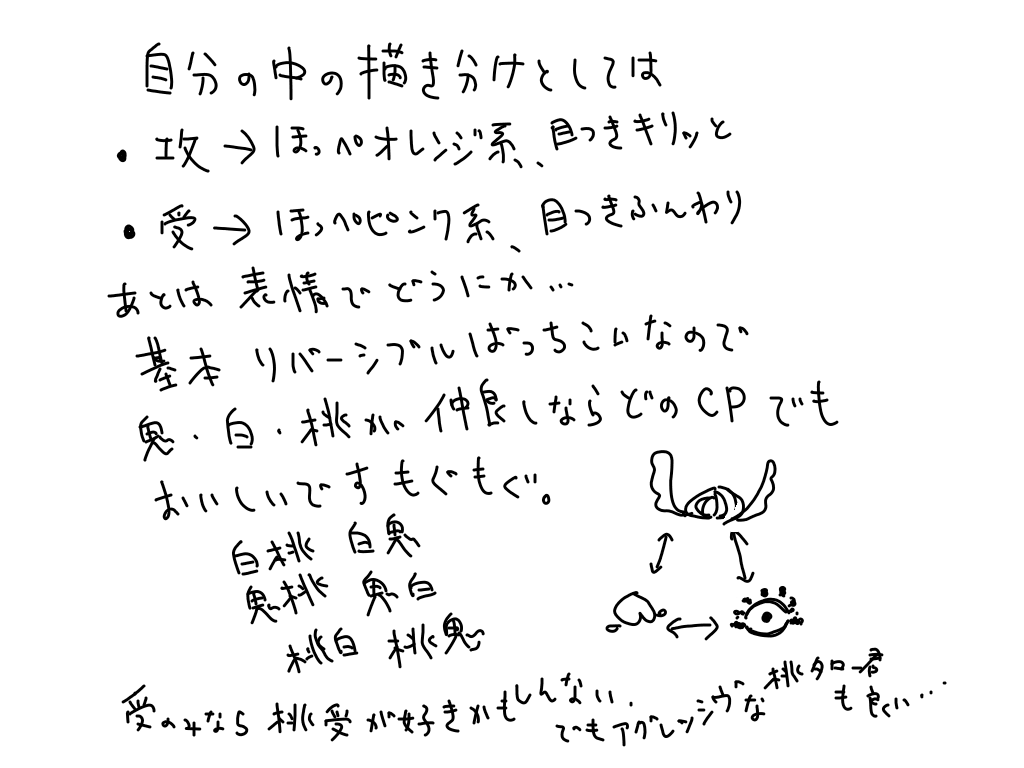 自分の中の描き分けとしては
・攻→ほっぺオレンジ系、目つきキリッと
・受→ほっぺピンク系、目つきふんわり
あとは表情でどうにか…
基本リバーシブルばっちこいなので
鬼・白・桃が仲良しならどのCPでも
おいしいですもぐもぐ。
白桃 白鬼
鬼桃 鬼白
桃白 桃鬼
受のみなら桃受が好きかもしんない.
でもアグレッシヴな桃タロー君
も良い…